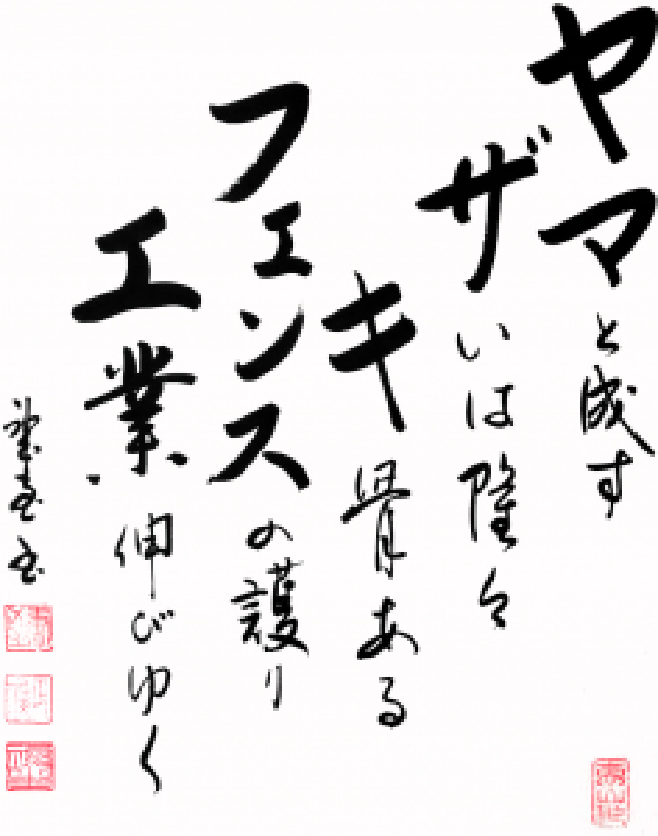 ヤマと成す
ザいは隆々
キ骨ある
フェンスの護り
工業伸びゆく